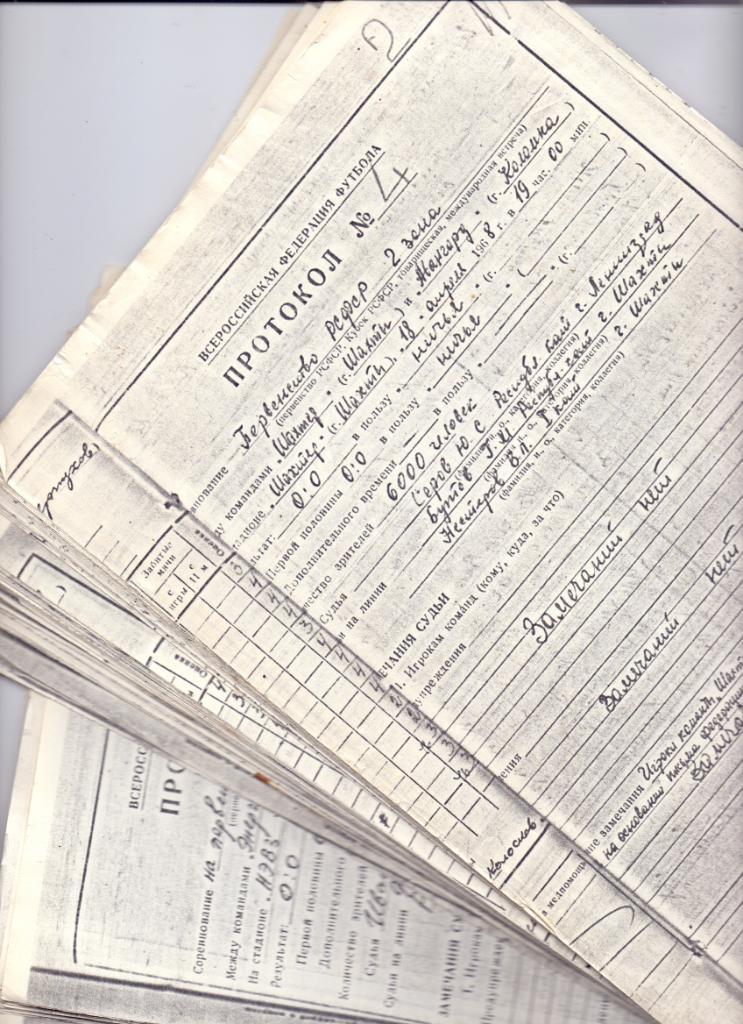 2
ВСЕРОССИЙСКАЯ ФЕДЕРАЦИЯ ФУТБОЛА
ПРОТОКОЛ № 4
нование Первенство РСФСР 2 зона
(первенство РСФСР, Кубок РСФСР, товарищеская, международная встреча)
ду командами „Шахтер“ (г. Шахты) и „Авангард“ (г. Коломна)
адионе „Шахтер“ (г. Шахты). 18 апреля 1968 г. в 19 час. 00 мин.
ьтат: 0:0 в пользу ничья (г. )
Первой половины 0:0 в пользу ничья
Дополнительного времени — в пользу — (г. )
чество зрителей 6000 человек
Судья Серов Ю С Республ. кат г. Ленинград
(фамилия, и., о., категория, коллегия)
и на линии Бутов Г.М. Республ. кат г. Шахты
(фамилия, и., о., категория, коллегия)
В.Л. I кат г. Шахты
(фамилия, и., о., категория, коллегия)
ЧАНИЯ СУДЬИ
1. Игрокам команд (кому, куда, за что)
упреждения Замечаний нет
ения Замечаний нет
ие замечания Игроки команды Шахт
на основании письма федерации
Замеча
в медпомощ
Забитые мячи
с игры
с 11 м
Оценка
Колоснов
Оценка
ВСЕРОСС
ПРО
Соревнование на первен
(перве
Между командами „Энер
На стадионе „НЭВЗ
Результат: 0:0
Первой половины
Дополнительного
Количество зрителей
Судья
Судьи на линии
ЗАМЕЧАНИЯ СУ
1. Игрока
Предупрежде